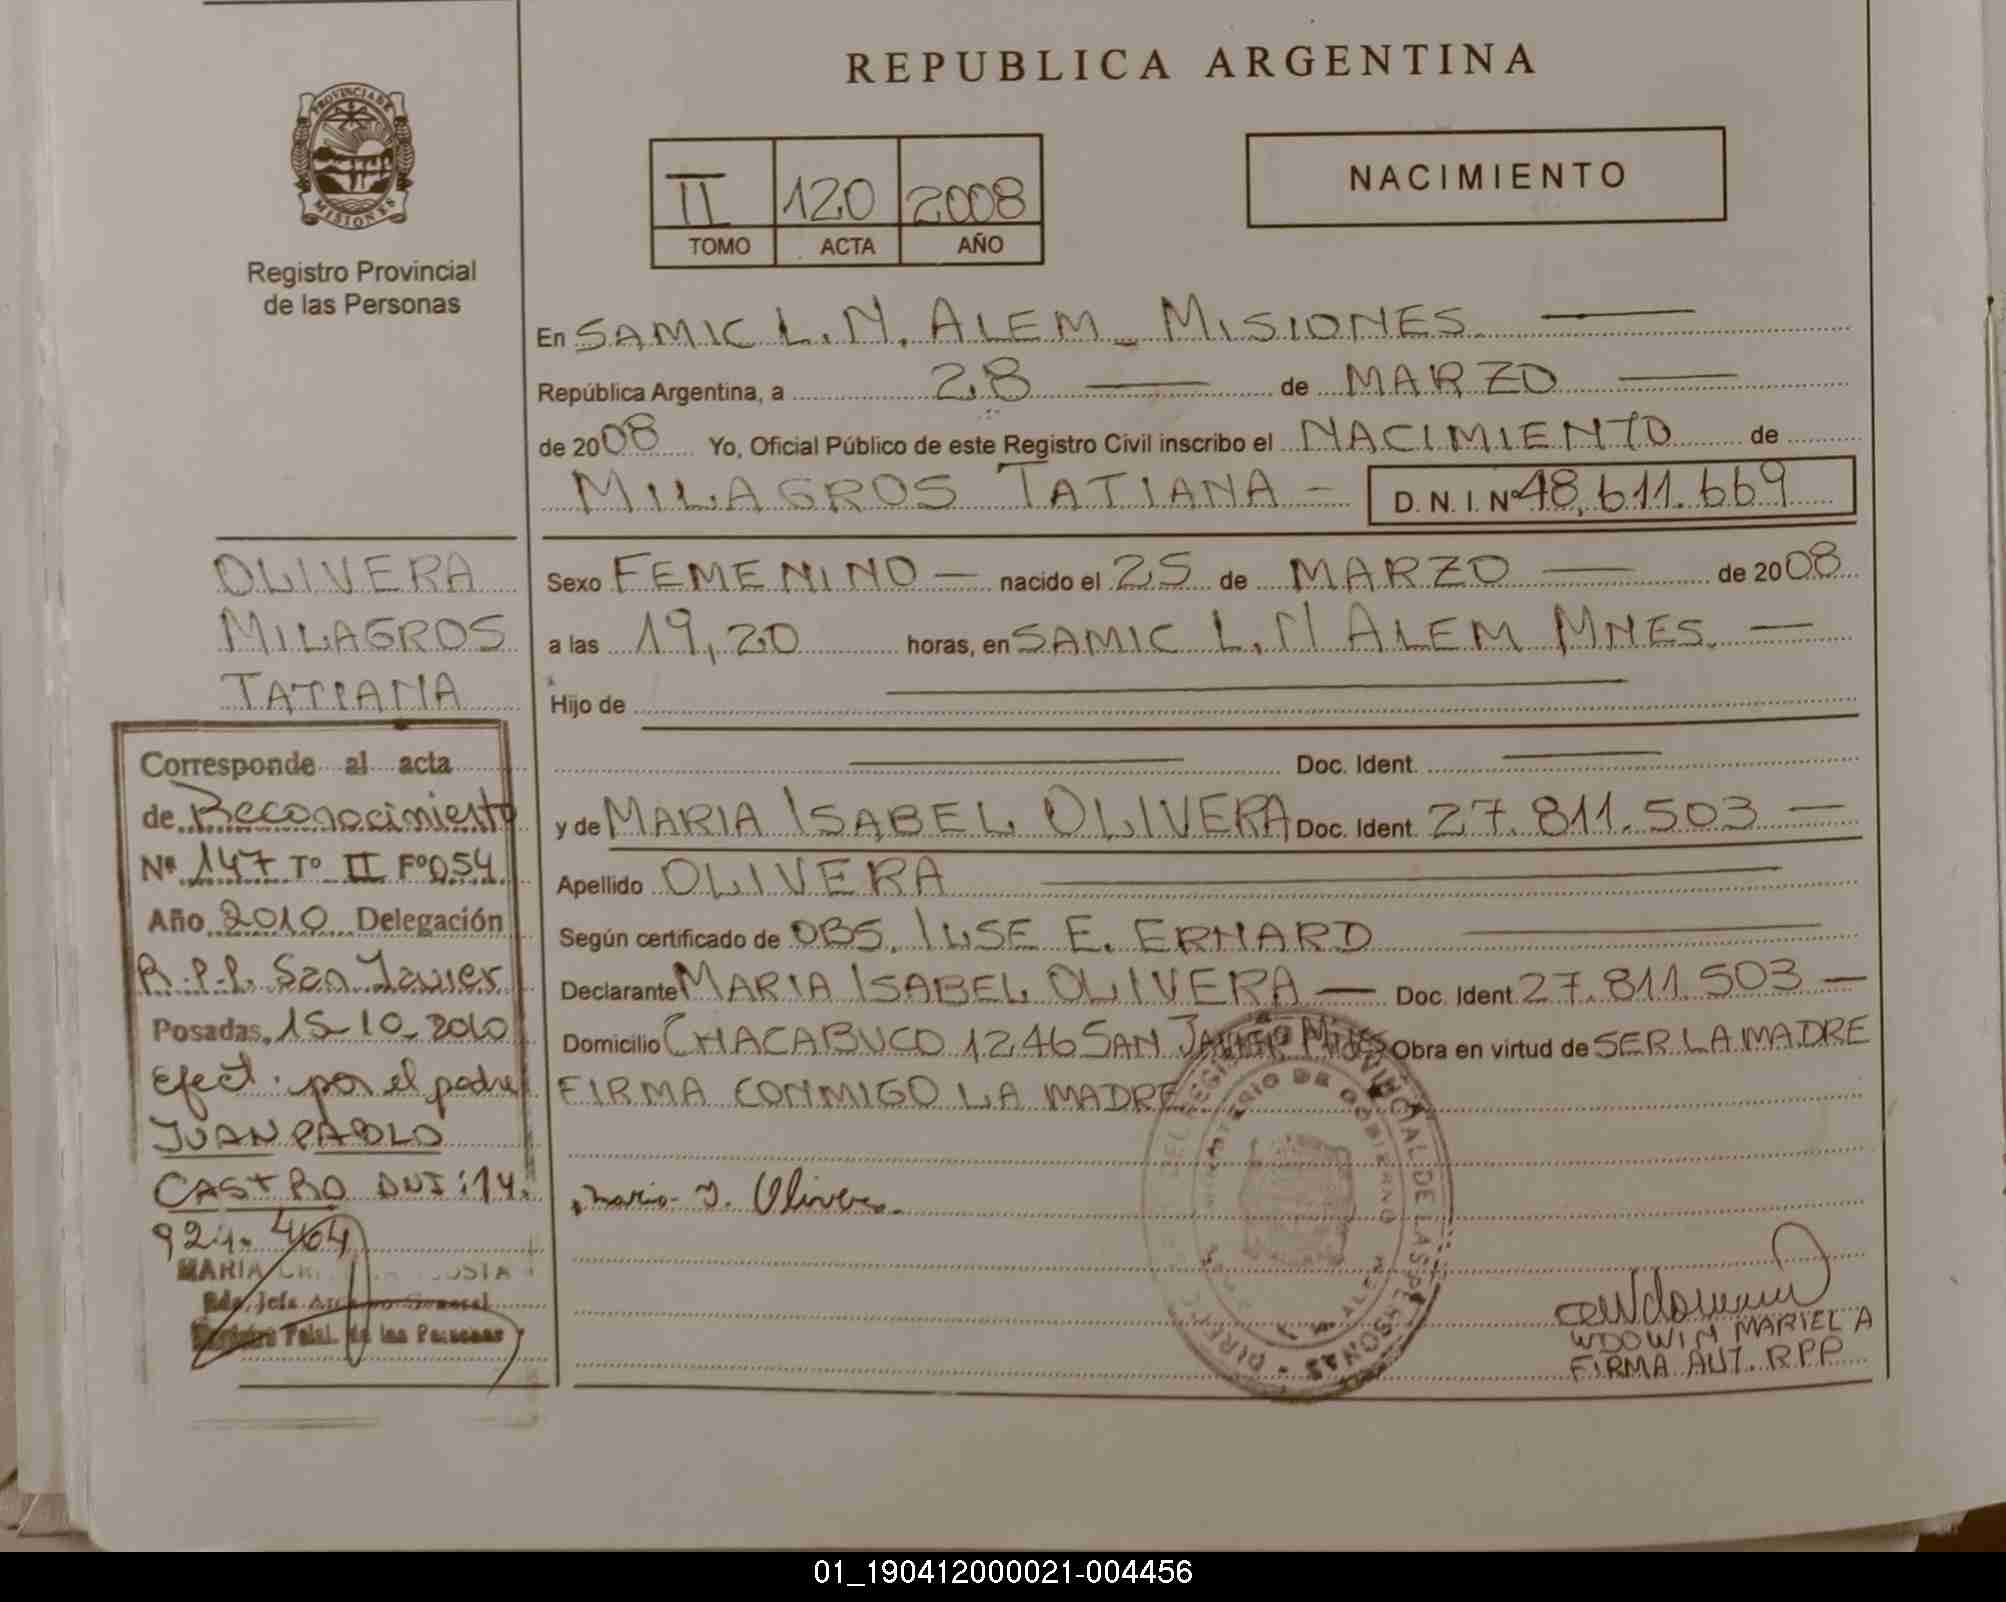 REPUBLICA ARGENTINA
PROVINCIA DE
MISIONES
Registro Provincial
de las Personas
II 120 2008
TOMO ACTA AÑO
NACIMIENTO
En SAMIC L.N. ALEM_ MISIONES
República Argentina, a 28 de MARZO
de 2008 Yo, Oficial Público de este Registro Civil inscribo el NACIMIENTO de
MILAGROS TATIANA - D.N.I. Nº 48.611.669
OLIVERA
MILAGROS
TATIANA
Sexo FEMENINO - nacido el 25 de MARZO de 2008
a las 19,20 horas, en SAMIC L.N ALEM MNES.
Hijo de
Doc. Ident.
y de MARIA ISABEL OLIVERA Doc. Ident. 27.811.503
Apellido OLIVERA
Según certificado de OBS. ILSE E. ERHARD
Declarante MARIA ISABEL OLIVERA Doc. Ident. 27.811.503
Domicilio CHACABUCO 1246 SAN JAVIER MNES Obra en virtud de SER LA MADRE
FIRMA CONMIGO LA MADRE
Maria I. Olivera
WDOWIN MARIELA
FIRMA AUT. RPP
Corresponde al acta
de Reconocimiento
Nº 147 Tº II Fº 054
Año 2010 Delegación
R.P.P. San Javier
Posadas, 15-10-2010
Efect. por el padre
JUAN PABLO
CASTRO DNI: 14.
921. 464
MARIA
Jefe General
de las Personas
REGISTRO PROVINCIAL DE LAS PERSONAS
MINISTERIO DE GOBIERNO
01_190412000021-004456